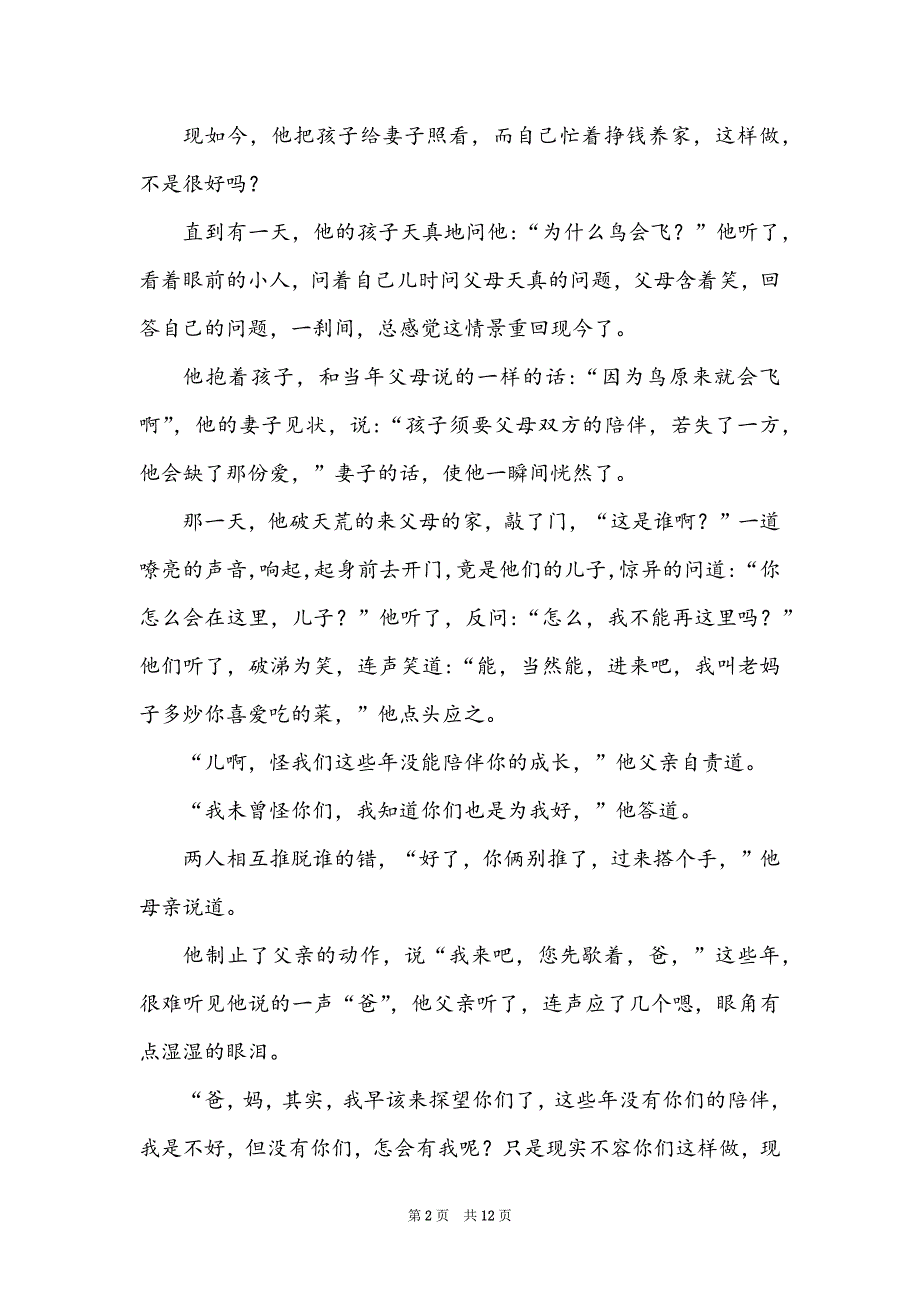 现如今，他把孩子给妻子照看，而自己忙着挣钱养家，这样做，
不是很好吗？
直到有一天，他的孩子天真地问他：“为什么鸟会飞？”他听了，
看着眼前的小人，问着自己儿时问父母天真的问题，父母含着笑，回
答自己的问题，一刹间，总感觉这情景重回现今了。
他抱着孩子，和当年父母说的一样的话：“因为鸟原来就会飞
啊”，他的妻子见状，说：“孩子须要父母双方的陪伴，若失了一方，
他会缺了那份爱，”妻子的话，使他一瞬间恍然了。
那一天，他破天荒的来父母的家，敲了门，“这是谁啊？”一道
嘹亮的声音,响起,起身前去开门,竟是他们的儿子,惊异的问道：“你
怎么会在这里，儿子？”他听了，反问：“怎么，我不能再这里吗？”
他们听了，破涕为笑，连声笑道：“能，当然能，进来吧，我叫老妈
子多炒你喜爱吃的菜，”他点头应之。
“儿啊，怪我们这些年没能陪伴你的成长，”他父亲自责道。
“我未曾怪你们，我知道你们也是为我好，”他答道。
两人相互推脱谁的错，“好了，你俩别推了，过来搭个手，”他
母亲说道。
他制止了父亲的动作，说“我来吧，您先歇着，爸，”这些年，
很难听见他说的一声“爸”，他父亲听了，连声应了几个嗯，眼角有
点湿湿的眼泪。
“爸，妈，其实，我早该来探望你们了，这些年没有你们的陪伴，
我是不好，但没有你们，怎会有我呢？只是现实不容你们这样做，现
第 2 页 共 12 页